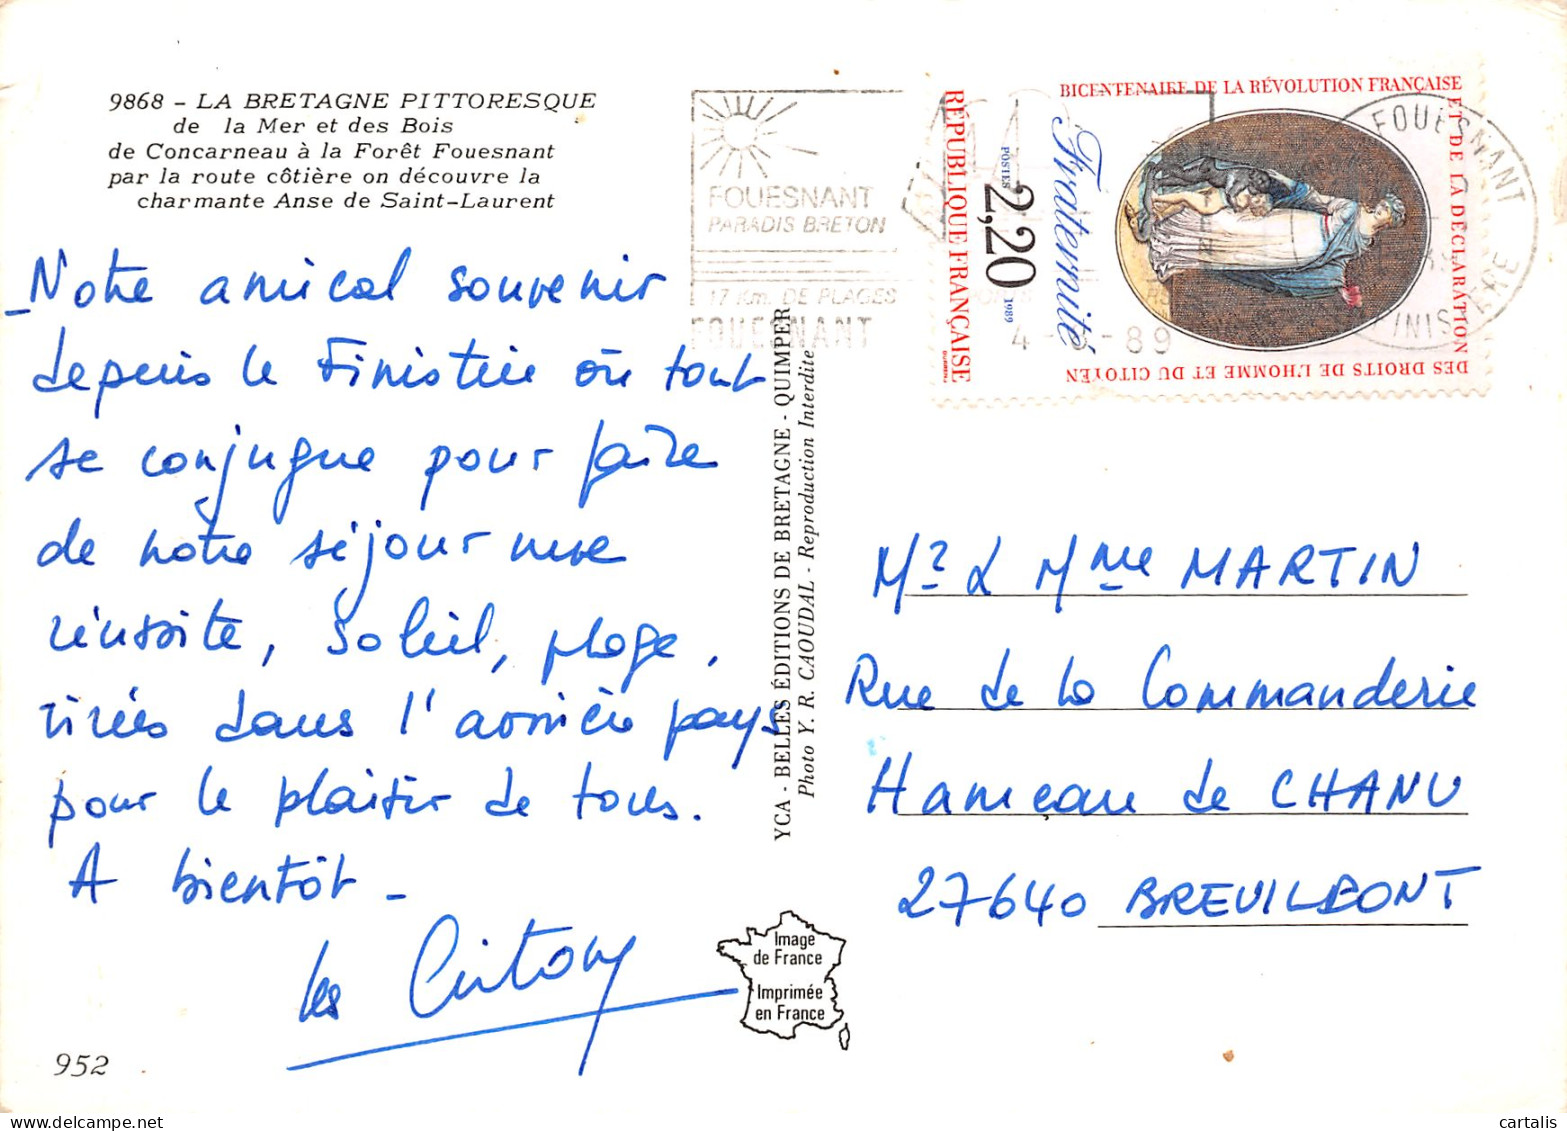 9868 - LA BRETAGNE PITTORESQUE
de la Mer et des Bois
de Concarneau à la Forêt Fouesnant
par la route côtière on découvre la
charmante Anse de Saint-Laurent
Notre amical souvenir
depuis le Finistère où tout
se conjugue pour faire
de notre séjour une
réussite, soleil, plage,
virées dans l'arrière pays
pour le plaisir de tous.
A bientôt -
les
952
YCA - BELLES ÉDITIONS DE BRETAGNE - QUIMPER
Photo Y. R. CAOUDAL - Reproduction Interdite
Image
de France
Imprimée
en France
FOUESNANT
PARADIS BRETON
17 Km. DE PLAGES
FOUESNANT
BICENTENAIRE DE LA RÉVOLUTION FRANÇAISE
ET DE LA DÉCLARATION
DES DROITS DE L'HOMME ET DU CITOYEN
RÉPUBLIQUE FRANÇAISE
POSTES 2,20 1989
Fraternité
FOUESNANT
FINISTÈRE
Mr & Mme MARTIN
Rue de la Commanderie
Hameau de CHANU
27640 BREUILPONT
cartalis